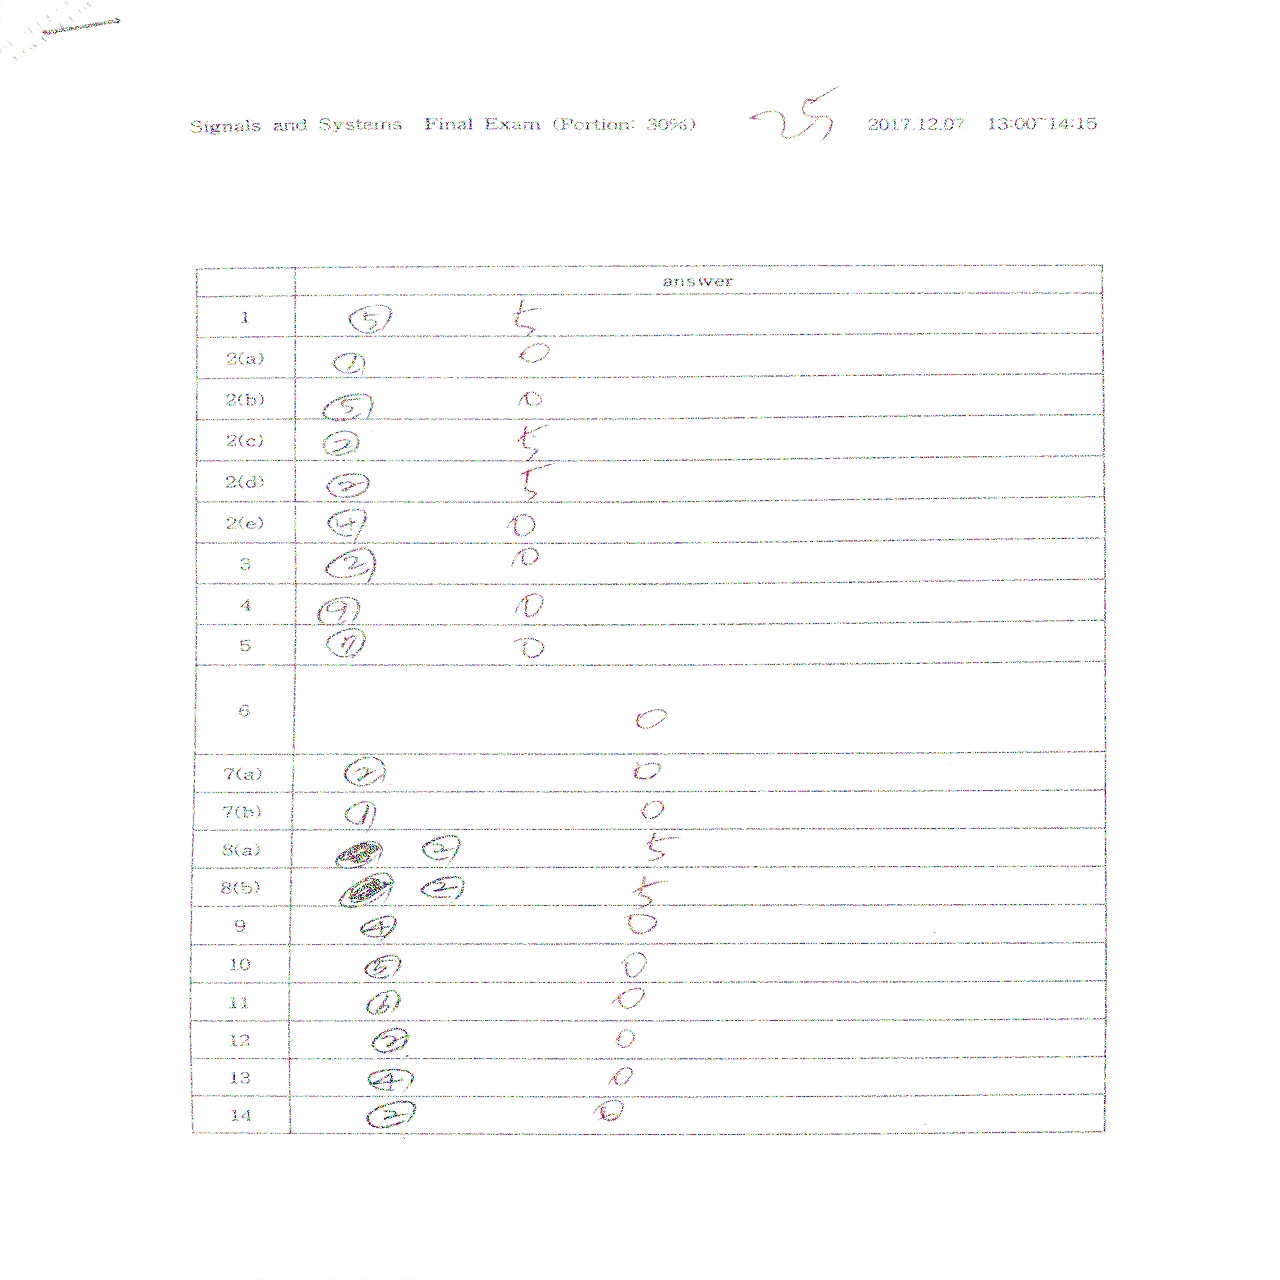 Signals and Systems Final Exam (Portion: 30%) 25 2017.12.07 13:00~14:15
answer
1 ⑤ 5
2(a) ① 0
2(b) ⑤ 0
2(c) ② 5
2(d) ② 5
2(e) ④ 0
3 ② 0
4 ⑨ 0
5 0
6 0
7(a) ② 0
7(b) ① 0
8(a) ② 5
8(b) ② 5
9 ④ 0
10 ⑤ 0
11 ⑥ 0
12 ② 0
13 ④ 0
14 ② 0